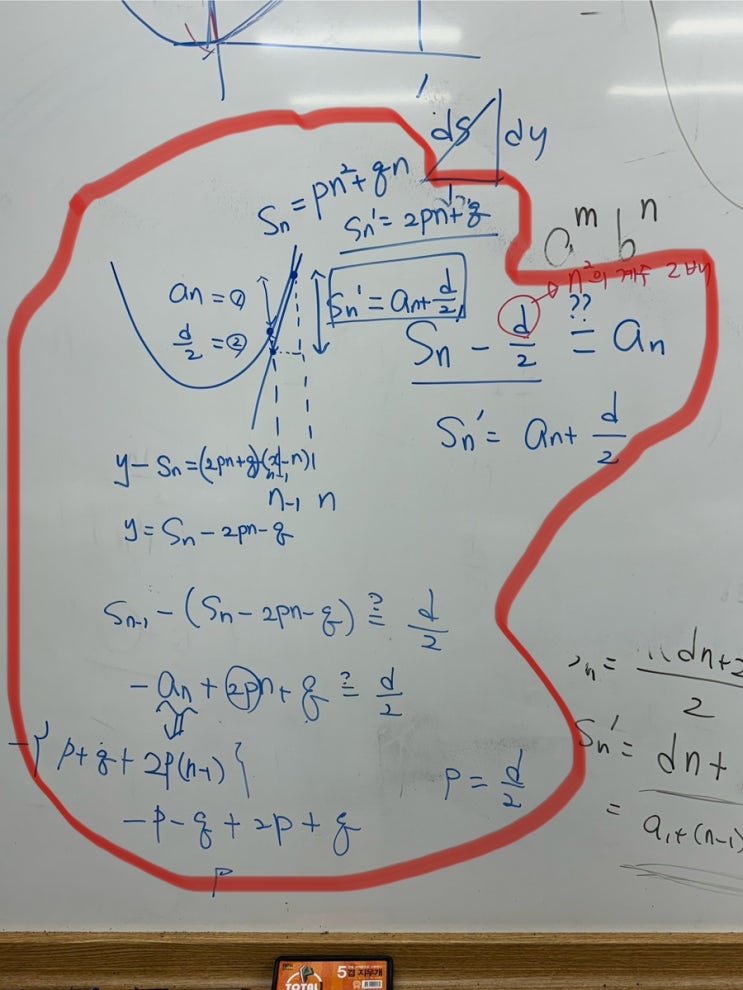 ds
dy
Sₙ = pn² + qn
Sₙ' = 2pn + q
aᵐ bⁿ
n²의 계수 2배
aₙ = ①
d/2 = ②
Sₙ' = aₙ + d/2
Sₙ - d/2 ≟ aₙ
??
Sₙ' = aₙ + d/2
y - Sₙ = (2pn + q)(x - n)
n-1
n-1 n
y = Sₙ - 2pn - q
Sₙ₋₁ - (Sₙ - 2pn - q) ≟ d/2
- aₙ + 2pn + q ≟ d/2
-{p + q + 2p(n-1)}
- p - q + 2p + q
p
p = d/2
dn + 2
2
Sₙ' = dn +
= a₁ + (n-1)
5겹 지우개
TOTAL